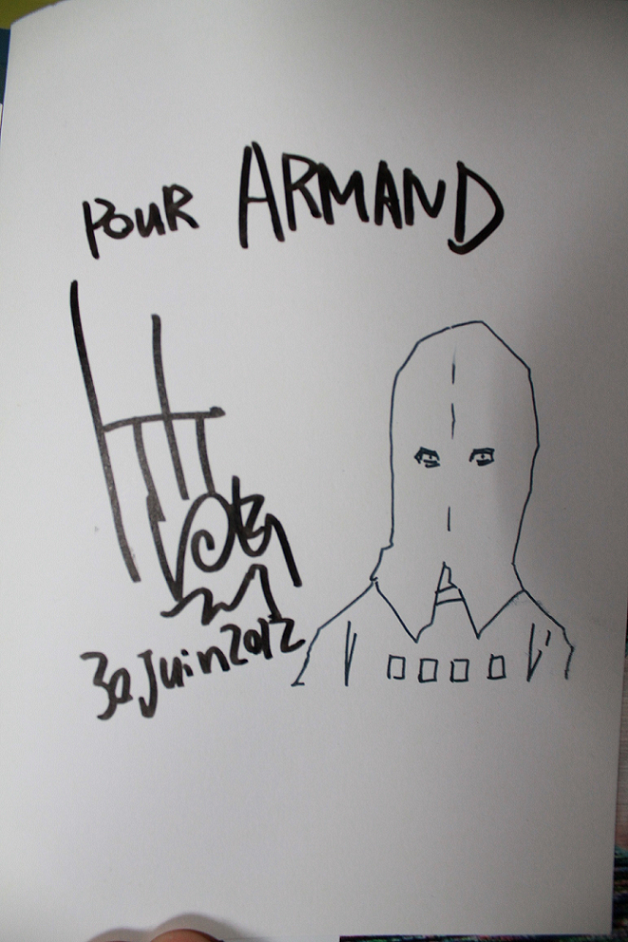 POUR ARMAND
30 Juin 2012